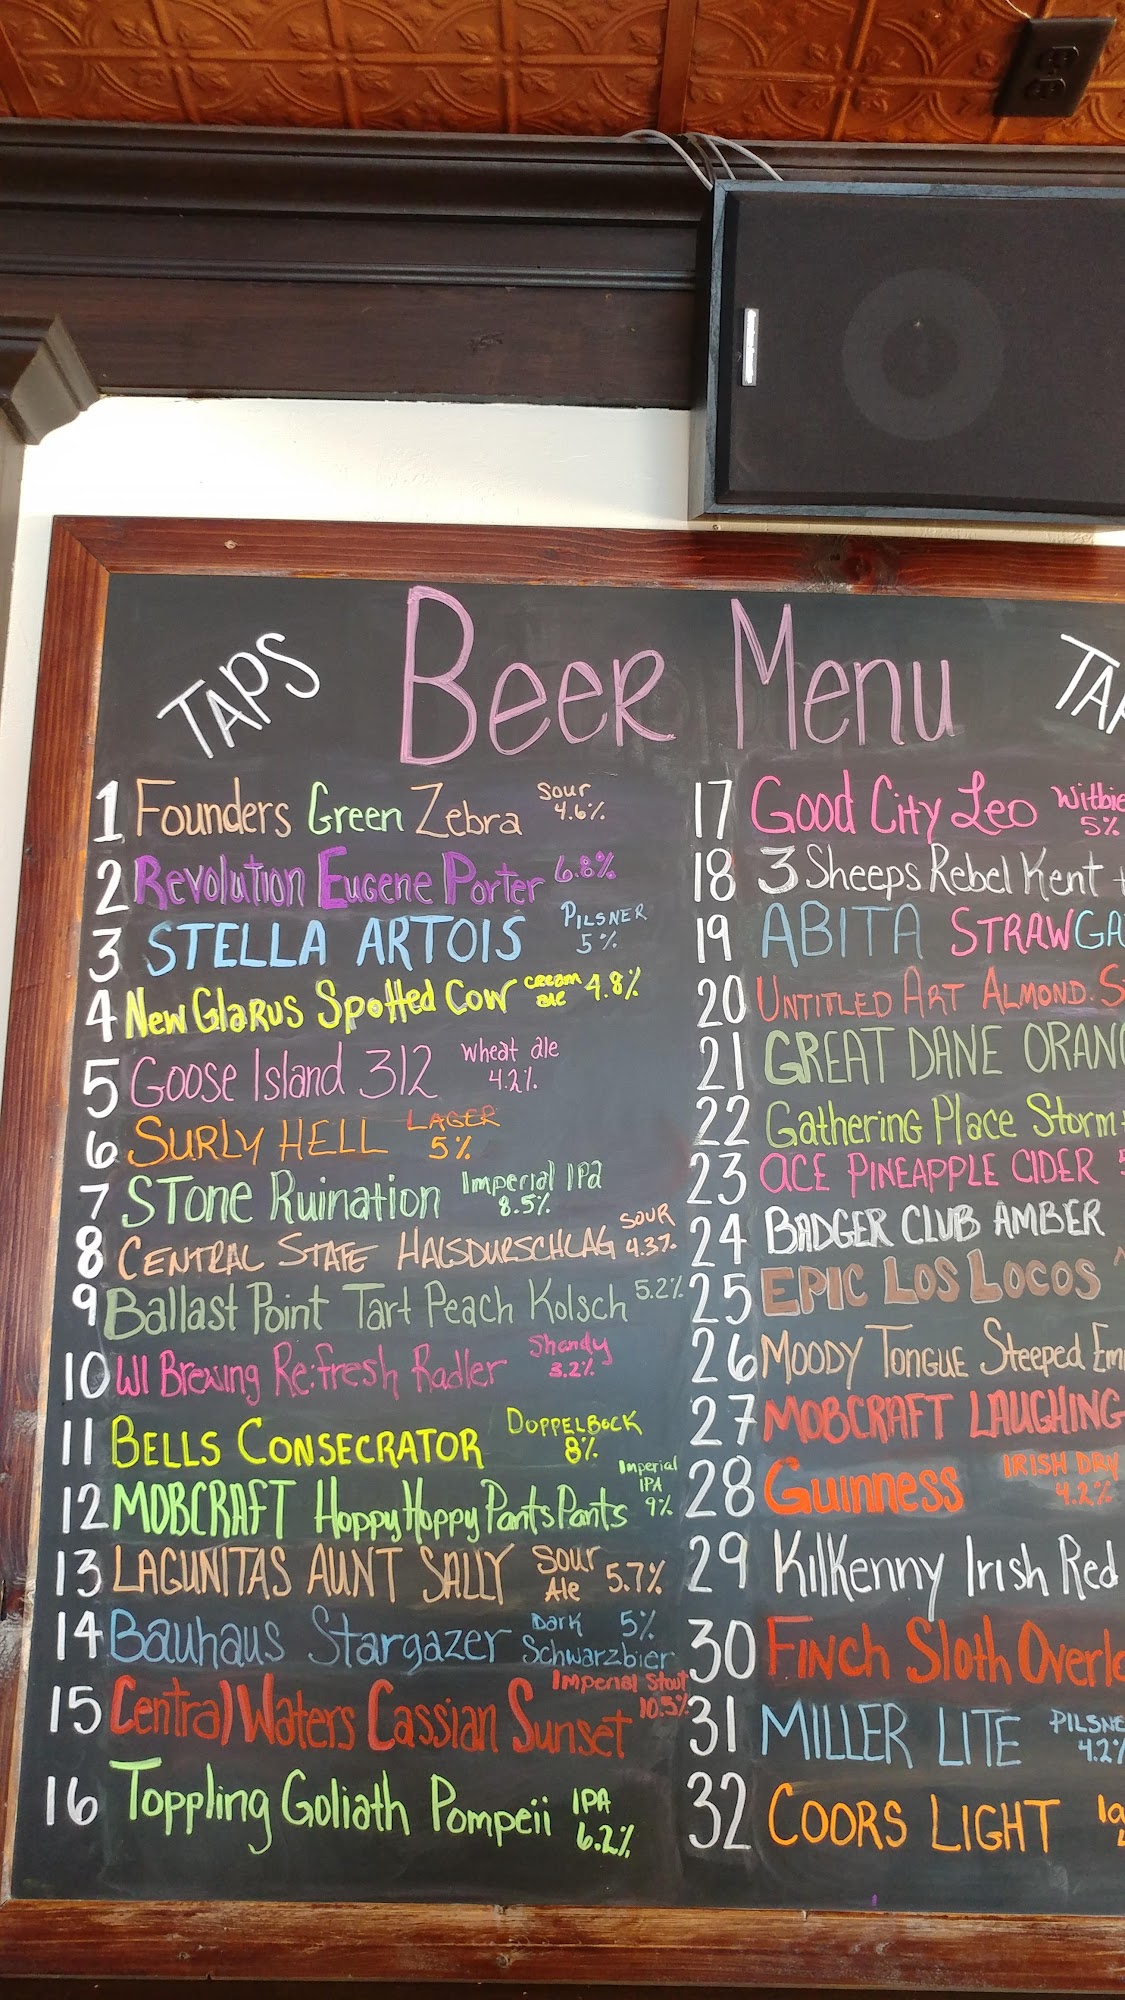 TAPS
Beer Menu
1 Founders Green Zebra Sour 4.6%
2 Revolution Eugene Porter 6.8%
3 STELLA ARTOIS PILSNER 5%
4 New Glarus Spotted Cow cream ale 4.8%
5 Goose Island 312 wheat ale 4.2%
6 SURLY HELL LAGER 5%
7 STone Ruination Imperial IPA 8.5%
8 CENTRAL STATE HALSDURSCHLAG SOUR 4.3%
9 Ballast Point Tart Peach Kolsch 5.2%
10 WI Brewing Re:fresh Radler Shandy 3.2%
11 BELLS CONSECRATOR DOPPELBOCK 8%
12 MOBCRAFT HoppyHoppyPantsPants Imperial IPA 9%
13 LAGUNITAS AUNT SALLY SOUR ALE 5.7%
14 Bauhaus Stargazer Dark Schwarzbier 5%
15 Central Waters Cassian Sunset Imperial Stout 10.5%
16 Toppling Goliath Pompeii IPA 6.2%
17 Good City Leo Witbie 5%
18 3 Sheeps Rebel Kent
19 ABITA STRAWGA
20 UNTITLED ART ALMOND. S
21 GREAT DANE ORAN
22 Gathering Place Storm
23 ACE PINEAPPLE CIDER
24 BADGER CLUB AMBER
25 EPIC LOS LOCOS
26 MOODY TONGUE Steeped Em
27 MOBCRAFT LAUGHING
28 Guinness IRISH DRY 4.2%
29 Kilkenny Irish Red
30 FINCH Sloth Overlo
31 MILLER LITE PILSNE 4.2%
32 COORS LIGHT la